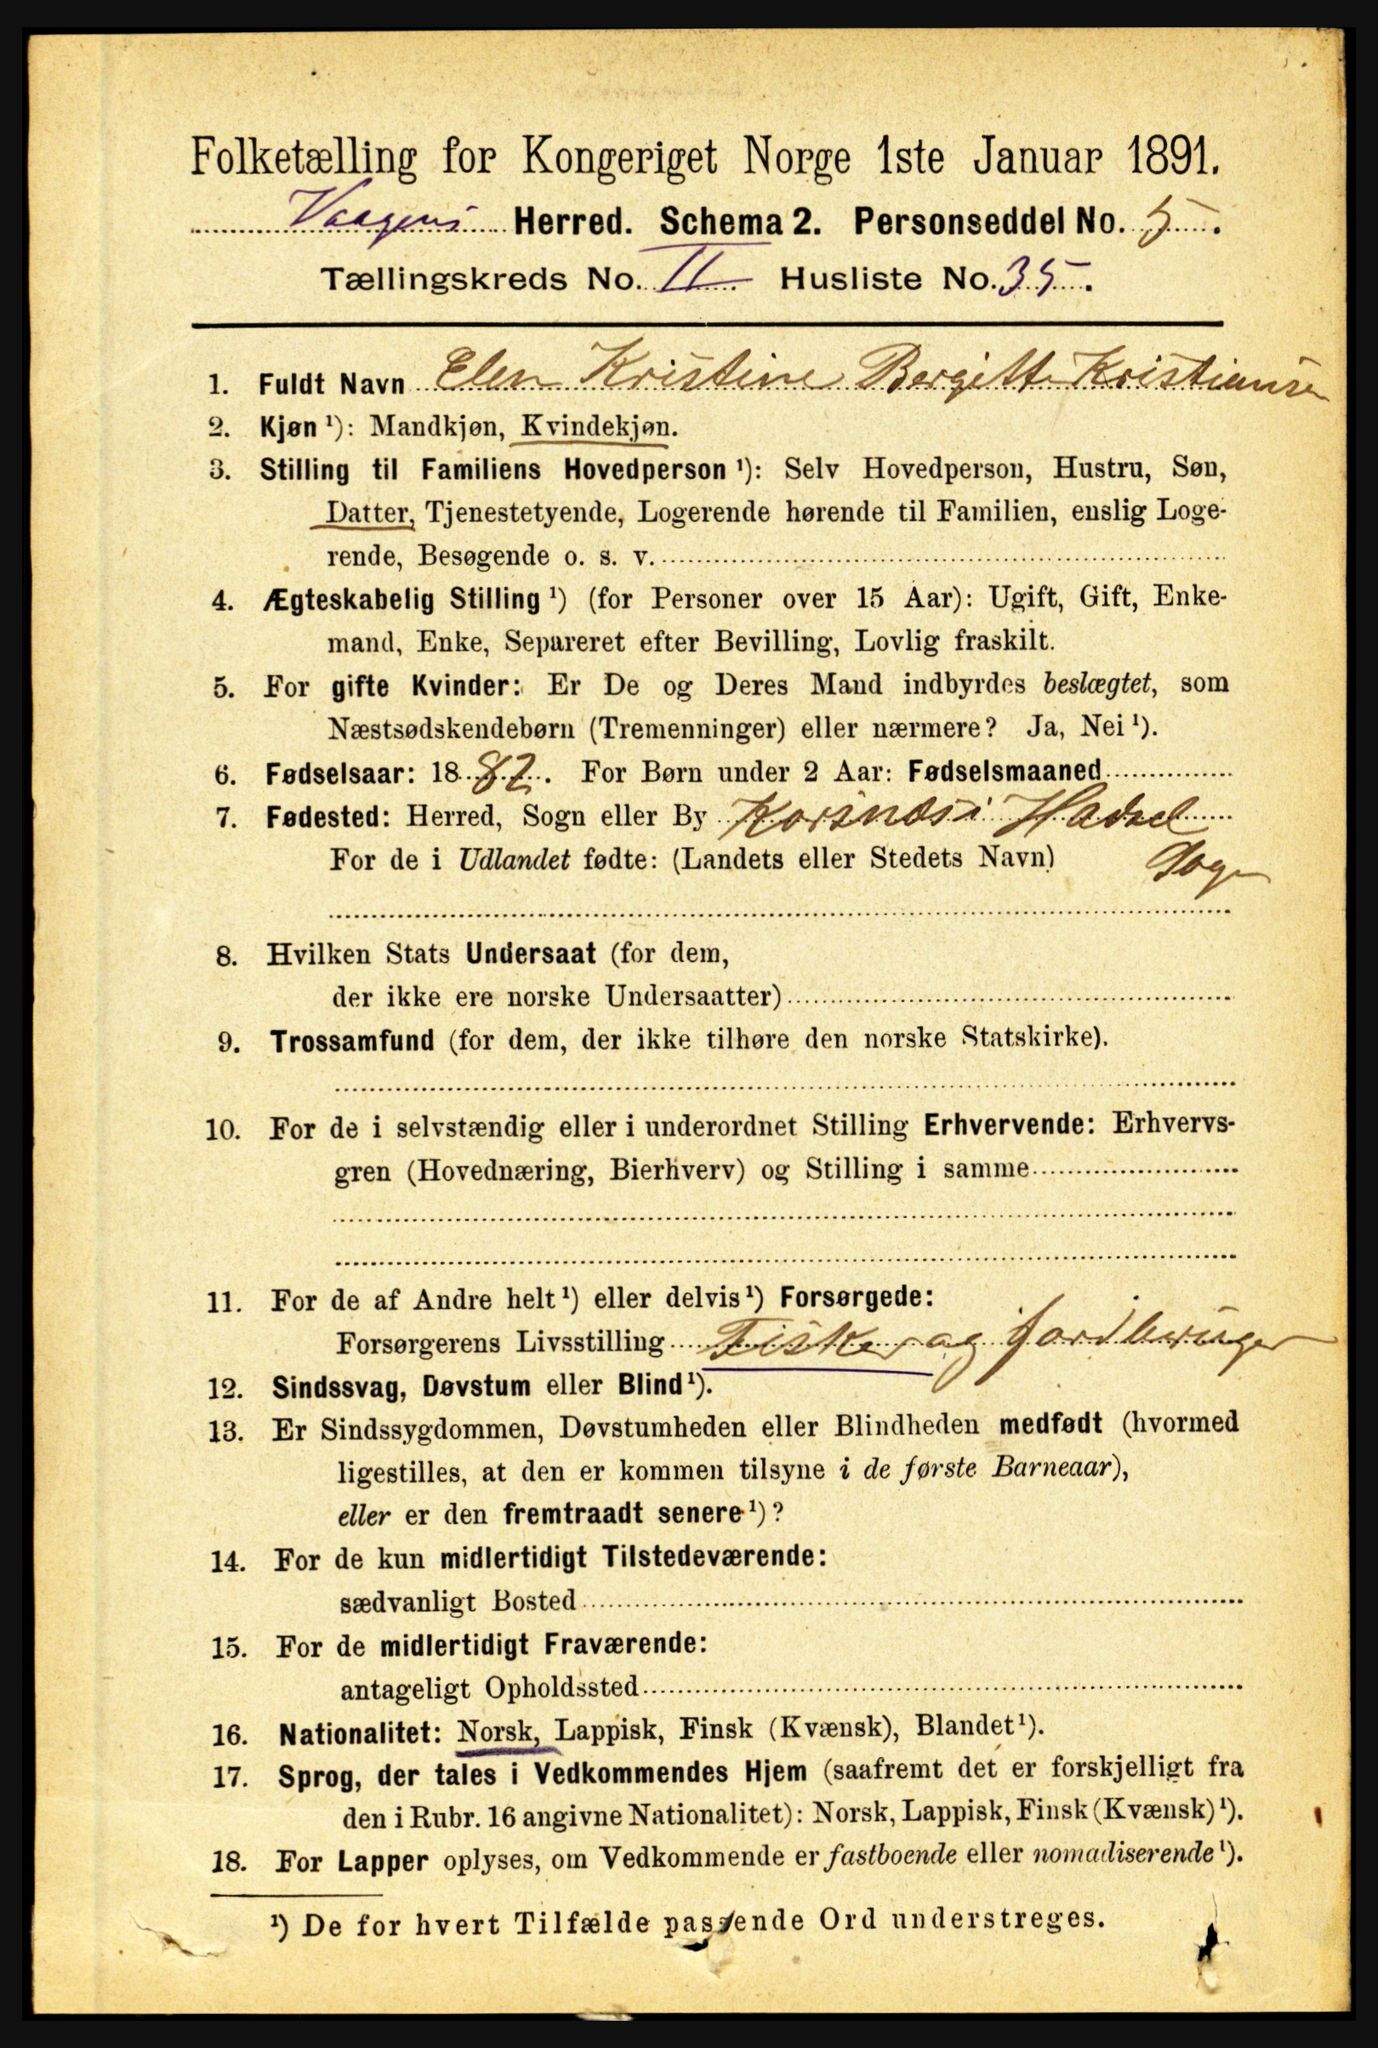 Folketælling for Kongeriget Norge 1ste Januar 1891.
Vaagens Herred. Schema 2. Personseddel No. 5.
Tællingskreds No. II Husliste No. 35.
1. Fuldt Navn Elen Kristine Bergitte Kristianse
2. Kjøn ¹): Mandkjøn, Kvindekjøn.
3. Stilling til Familiens Hovedperson ¹): Selv Hovedperson, Hustru, Søn,
Datter, Tjenestetyende, Logerende hørende til Familien, enslig Loge-
rende, Besøgende o. s. v.
4. Ægteskabelig Stilling ¹) (for Personer over 15 Aar): Ugift, Gift, Enke-
mand, Enke, Separeret efter Bevilling, Lovlig fraskilt.
5. For gifte Kvinder: Er De og Deres Mand indbyrdes beslægtet, som
Næstsødskendebørn (Tremenninger) eller nærmere? Ja, Nei ¹).
6. Fødselsaar: 1882. For Børn under 2 Aar: Fødselsmaaned
7. Fødested: Herred, Sogn eller By Korsnæs i Hadsel
For de i Udlandet fødte: (Landets eller Stedets Navn) Sogn
8. Hvilken Stats Undersaat (for dem,
der ikke ere norske Undersaatter)
9. Trossamfund (for dem, der ikke tilhøre den norske Statskirke).
10. For de i selvstændig eller i underordnet Stilling Erhvervende: Erhvervs-
gren (Hovednæring, Bierhverv) og Stilling i samme
11. For de af Andre helt ¹) eller delvis ¹) Forsørgede:
Forsørgerens Livsstilling Fisker og jordbruger
12. Sindssvag, Døvstum eller Blind ¹).
13. Er Sindssygdommen, Døvstumheden eller Blindheden medfødt (hvormed
ligestilles, at den er kommen tilsyne i de første Barneaar),
eller er den fremtraadt senere ¹)?
14. For de kun midlertidigt Tilstedeværende:
sædvanligt Bosted
15. For de midlertidigt Fraværende:
antageligt Opholdssted
16. Nationalitet: Norsk, Lappisk, Finsk (Kvænsk), Blandet ¹).
17. Sprog, der tales i Vedkommendes Hjem (saafremt det er forskjelligt fra
den i Rubr. 16 angivne Nationalitet): Norsk, Lappisk, Finsk (Kvænsk) ¹).
18. For Lapper oplyses, om Vedkommende er fastboende eller nomadiserende ¹).
¹) De for hvert Tilfælde passende Ord understreges.